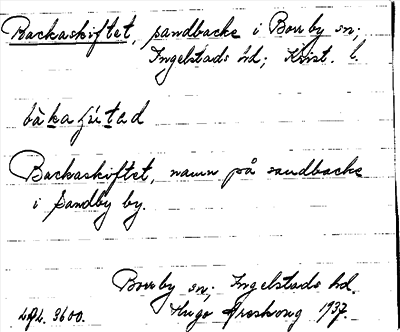 Backaskiftet, sandbacke i Borrby sn;
Ingelstads hd; Krist. l.
Backaskiftet, namn på sandbacke
i Sandby by.
Borrby sn; Ingelstads hd.
Hugo Areskoug 1937.